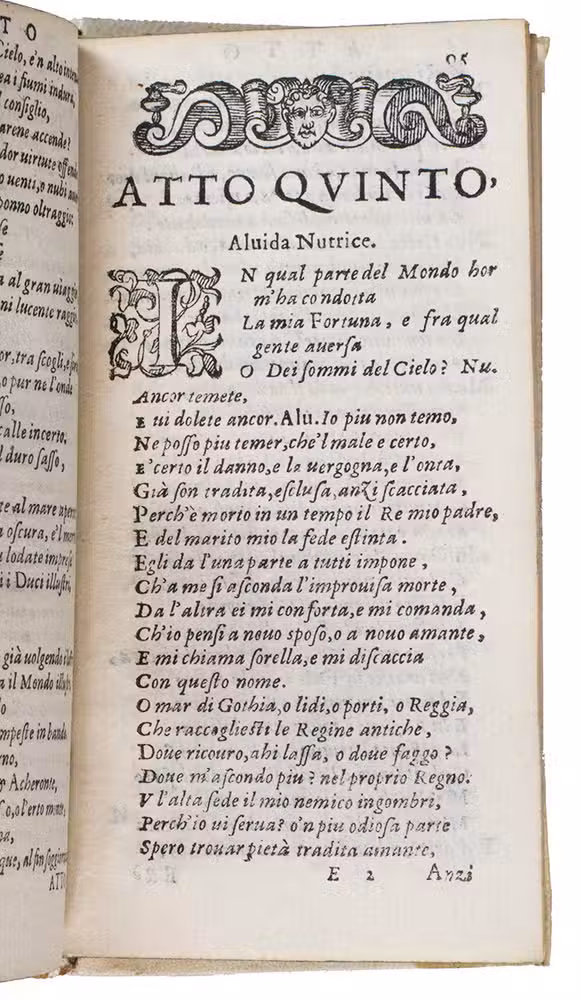 TO
Cielo, e'n alto
ea i fiumi indura,
l conſiglio,
arene accende?
dor uirtute
o uenti, o nubi
onno oltraggio;
ſe
ſe
a al gran uiaggio
ni lucente
or, tra ſcogli,
o pur ne l'onde
ſſo,
calle incerto;
l duro ſaſſo,
te al mare
a oſcura, e'l
u lodate impreſe
i i Duci illuſtri,
già uolgendo
a il Mondo
o
mpeſte in bando
rno,
& Acheronte,
o l'erto monte,
na,
que, al fin
ATT
95
ATTO QVINTO,
Aluida Nutrice.
IN qual parte del Mondo hor
m'ha condotta
La mia Fortuna, e fra qual
gente auerſa
O Dei ſommi del Cielo? Nu.
Ancor temete,
E ui dolete ancor. Alu. Io piu non temo,
Ne poſſo piu temer, che'l male e certo,
E' certo il danno, e la uergogna, e l'onta,
Già ſon tradita, eſcluſa, anzi ſcacciata,
Perch'è morto in un tempo il Re mio padre,
E del marito mio la fede eſtinta.
Egli da l'una parte a tutti impone,
Ch'a me ſi aſconda l'improuiſa morte,
Da l'altra ei mi conforta, e mi comanda,
Ch'io penſi a nouo ſpoſo, o a nouo amante,
E mi chiama ſorella, e mi diſcaccia
Con queſto nome.
O mar di Gothia, o lidi, o porti, o Reggia,
Che raccoglieſti le Regine antiche,
Doue ricouro, ahi laſſa, o doue faggo?
Doue m'aſcondo piu? nel proprio Regno.
V l'alta ſede il mio nemico ingombri,
Perch'io ui ſerua? o'n piu odioſa parte
Spero trouar pietà tradita amante,
E 2 Anzi